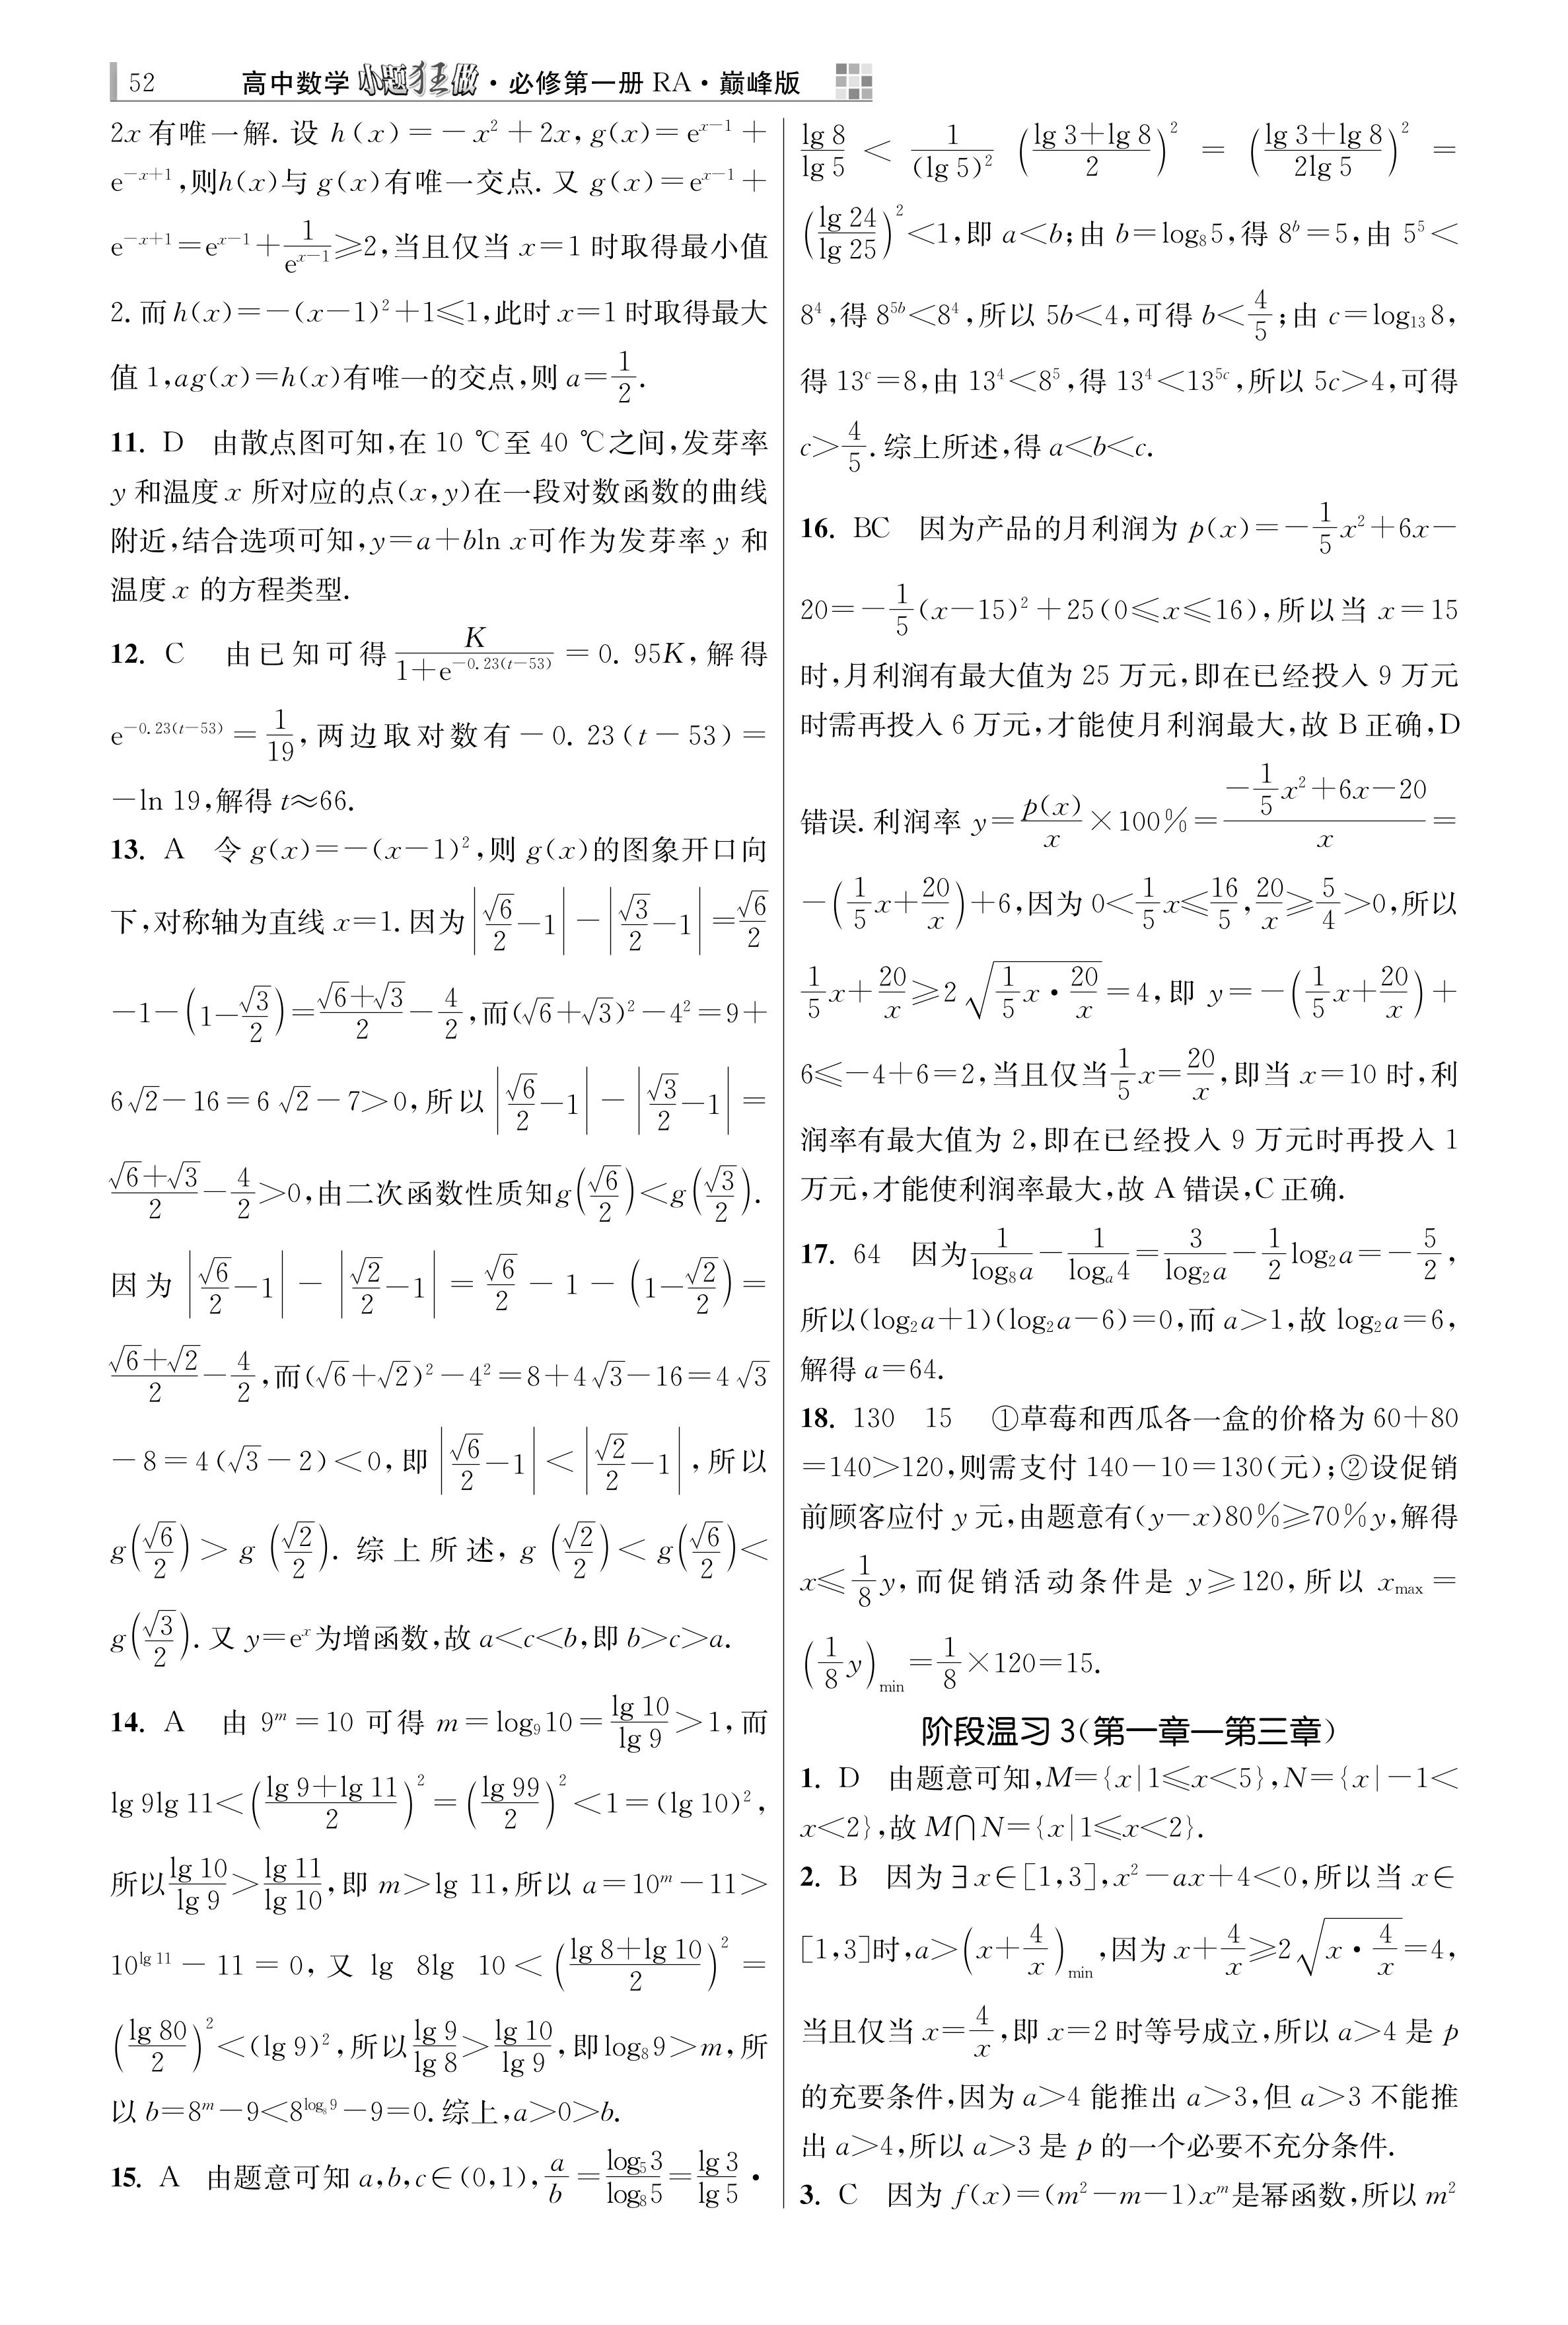 52 高中数学 小题狂做·必修第一册 RA·巅峰版
2x 有唯一解. 设 h(x)=-x²+2x, g(x)=e^{x-1}+
e^{-x+1},则h(x)与 g(x)有唯一交点. 又 g(x)=e^{x-1}+
e^{-x+1}=e^{x-1}+\frac{1}{e^{x-1}}≥2,当且仅当 x=1 时取得最小值
2. 而 h(x)=-(x-1)²+1≤1,此时 x=1 时取得最大
值 1,ag(x)=h(x)有唯一的交点,则 a=\frac{1}{2}.
11. D 由散点图可知,在 10 ℃至 40 ℃之间,发芽率
y 和温度 x 所对应的点(x,y)在一段对数函数的曲线
附近,结合选项可知,y=a+bln x可作为发芽率 y 和
温度 x 的方程类型.
12. C 由已知可得\frac{K}{1+e^{-0.23(t-53)}}=0.95K,解得
e^{-0.23(t-53)}=\frac{1}{19},两边取对数有-0.23(t-53)=
-ln 19,解得 t≈66.
13. A 令 g(x)=-(x-1)²,则 g(x)的图象开口向
下,对称轴为直线 x=1. 因为|\frac{√6}{2}-1|-|\frac{√3}{2}-1|=\frac{√6}{2}
-1-(1-\frac{√3}{2})=\frac{√6+√3}{2}-\frac{4}{2},而(√6+√3)²-4²=9+
6√2-16=6√2-7>0,所以|\frac{√6}{2}-1|-|\frac{√3}{2}-1|=
\frac{√6+√3}{2}-\frac{4}{2}>0,由二次函数性质知g(\frac{√6}{2})<g(\frac{√3}{2}).
因为|\frac{√6}{2}-1|-|\frac{√2}{2}-1|=\frac{√6}{2}-1-(1-\frac{√2}{2})=
\frac{√6+√2}{2}-\frac{4}{2},而(√6+√2)²-4²=8+4√3-16=4√3
-8=4(√3-2)<0,即|\frac{√6}{2}-1|<|\frac{√2}{2}-1|,所以
g(\frac{√6}{2})>g(\frac{√2}{2}). 综上所述,g(\frac{√2}{2})<g(\frac{√6}{2})<
g(\frac{√3}{2}). 又 y=e^x为增函数,故 a<c<b,即 b>c>a.
14. A 由 9^m=10 可得 m=log₉10=\frac{lg 10}{lg 9}>1,而
lg 9lg 11<(\frac{lg 9+lg 11}{2})²=(\frac{lg 99}{2})²<1=(lg 10)²,
所以\frac{lg 10}{lg 9}>\frac{lg 11}{lg 10},即 m>lg 11,所以 a=10^m-11>
10^{lg 11}-11=0,又 lg 8lg 10<(\frac{lg 8+lg 10}{2})²=
(\frac{lg 80}{2})²<(lg 9)²,所以\frac{lg 9}{lg 8}>\frac{lg 10}{lg 9},即log₈9>m,所
以 b=8^m-9<8^{log₈9}-9=0. 综上,a>0>b.
15. A 由题意可知 a,b,c∈(0,1),\frac{a}{b}=\frac{log₅3}{log₈5}=\frac{lg 3}{lg 5}·
\frac{lg 8}{lg 5}<\frac{1}{(lg 5)²}(\frac{lg 3+lg 8}{2})²=(\frac{lg 3+lg 8}{2lg 5})²=
(\frac{lg 24}{lg 25})²<1,即 a<b;由 b=log₈5,得 8^b=5,由 5⁵<
8⁴,得 8^{5b}<8⁴,所以 5b<4,可得 b<\frac{4}{5};由 c=log₁₃8,
得 13^c=8,由 13⁴<8⁵,得 13⁴<13^{5c},所以 5c>4,可得
c>\frac{4}{5}. 综上所述,得 a<b<c.
16. BC 因为产品的月利润为 p(x)=-\frac{1}{5}x²+6x-
20=-\frac{1}{5}(x-15)²+25(0≤x≤16),所以当 x=15
时,月利润有最大值为 25 万元,即在已经投入 9 万元
时需再投入 6 万元,才能使月利润最大,故 B 正确,D
错误. 利润率 y=\frac{p(x)}{x}×100%=\frac{-\frac{1}{5}x²+6x-20}{x}=
-(\frac{1}{5}x+\frac{20}{x})+6,因为 0<\frac{1}{5}x≤\frac{16}{5},\frac{20}{x}≥\frac{5}{4}>0,所以
\frac{1}{5}x+\frac{20}{x}≥2\sqrt{\frac{1}{5}x·\frac{20}{x}}=4,即 y=-(\frac{1}{5}x+\frac{20}{x})+
6≤-4+6=2,当且仅当\frac{1}{5}x=\frac{20}{x},即当 x=10 时,利
润率有最大值为 2,即在已经投入 9 万元时再投入 1
万元,才能使利润率最大,故 A 错误,C 正确.
17. 64 因为\frac{1}{log₈a}-\frac{1}{logₐ4}=\frac{3}{log₂a}-\frac{1}{2}log₂a=-\frac{5}{2},
所以(log₂a+1)(log₂a-6)=0,而 a>1,故 log₂a=6,
解得 a=64.
18. 130 15 ①草莓和西瓜各一盒的价格为 60+80
=140>120,则需支付 140-10=130(元);②设促销
前顾客应付 y 元,由题意有(y-x)80%≥70%y,解得
x≤\frac{1}{8}y,而促销活动条件是 y≥120,所以 x_{max}=
(\frac{1}{8}y)_{min}=\frac{1}{8}×120=15.
阶段温习 3(第一章—第三章)
1. D 由题意可知,M={x|1≤x<5},N={x|-1<
x<2},故 M∩N={x|1≤x<2}.
2. B 因为∃x∈[1,3],x²-ax+4<0,所以当 x∈
[1,3]时,a>(x+\frac{4}{x})_{min},因为 x+\frac{4}{x}≥2\sqrt{x·\frac{4}{x}}=4,
当且仅当 x=\frac{4}{x},即 x=2 时等号成立,所以 a>4 是 p
的充要条件,因为 a>4 能推出 a>3,但 a>3 不能推
出 a>4,所以 a>3 是 p 的一个必要不充分条件.
3. C 因为 f(x)=(m²-m-1)x^m是幂函数,所以 m²